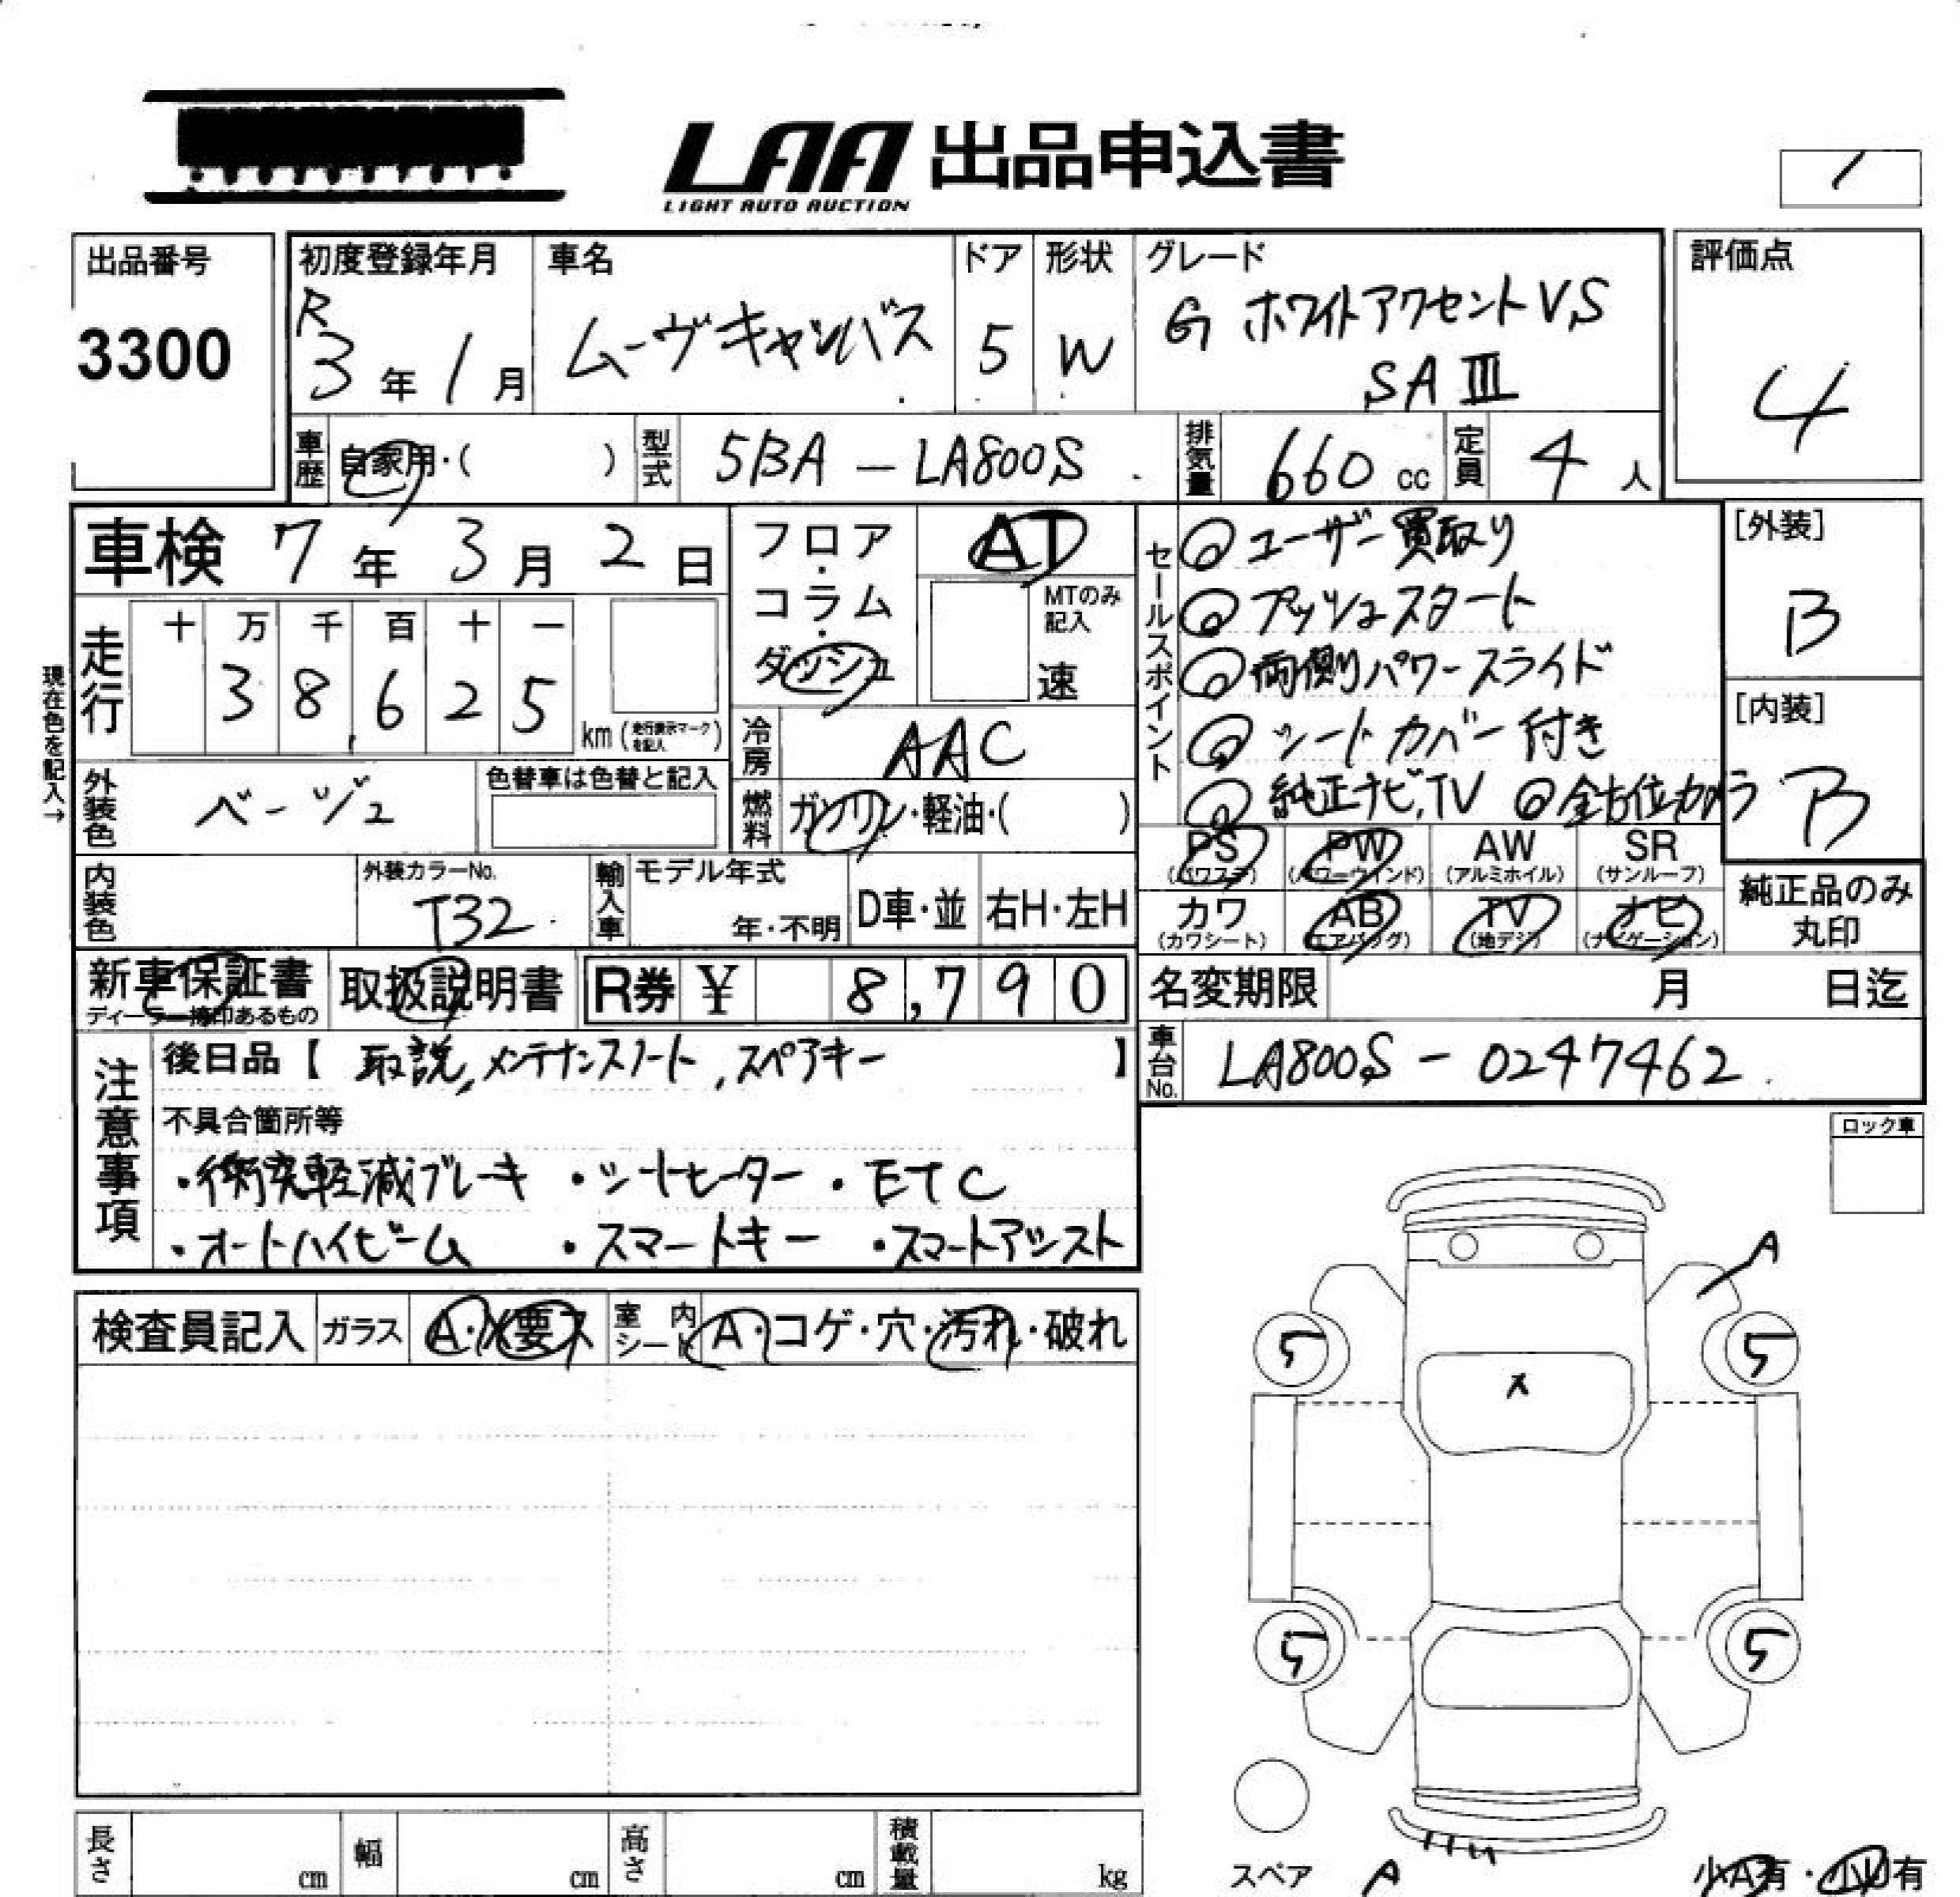 LAA 出品申込書
LIGHT AUTO AUCTION
出品番号
3300
初度登録年月
R
3年1月
車名
ムーヴキャンバス
ドア
5
形状
W
グレード
G ホワイトアクセントVS
SAⅢ
評価点
4
車歴
自家用・( )
型式
5BA-LA800S
排気量
660 cc
定員
4人
車検 7年3月2日
走行
十 万 千 百 十 一
3 8,6 2 5
km(走行表示マークを記入)
現在色を記入→
外装色
ベージュ
色替車は色替と記入
内装色
外装カラーNo.
T32
フロア・コラム・ダッシュ
AT
MTのみ記入
速
冷房
AAC
燃料
ガソリン・軽油・( )
輸入車
モデル年式
年・不明
D車・並
右H・左H
セールスポイント
◎ユーザー買取り
◎プッシュスタート
◎両側パワースライド
◎シートカバー付き
◎純正ナビ,TV ◎全方位カメラ
[外装]
B
[内装]
B
PS
(パワステ)
PW
(パワーウインド)
AW
(アルミホイル)
SR
(サンルーフ)
カワ
(カワシート)
AB
(エアバッグ)
TV
(地デジ)
ナビ
(ナビゲーション)
純正品のみ
丸印
新車保証書
ディーラー捺印あるもの
取扱説明書
R券 ¥ 8,790
名変期限 月 日迄
車台No.
LA800S-0247462
注意事項
後日品【 取説,メンテナンスノート,スペアキー 】
不具合箇所等
・衝突軽減ブレーキ ・シートヒーター ・ETC
・オートハイビーム ・スマートキー ・スマートアシスト
ロック車
検査員記入
ガラス
A・X要ス
室内シート
A・コゲ・穴・汚れ・破れ
A
5
5
X
5
5
スペア
A
少A有・小U有
長さ
cm
幅
cm
高さ
cm
積載量
kg